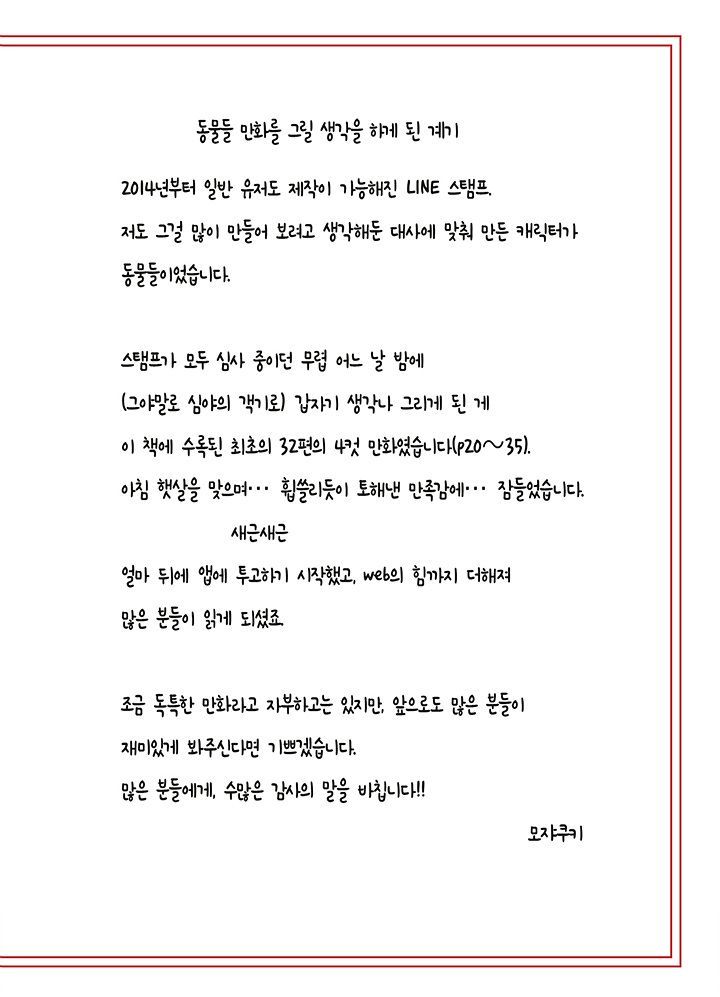 동물들 만화를 그릴 생각을 하게 된 계기
2014년부터 일반 유저도 제작이 가능해진 LINE 스탬프.
저도 그걸 많이 만들어 보려고 생각해둔 대사에 맞춰 만든 캐릭터가
동물들이었습니다.
스탬프가 모두 심사 중이던 무렵 어느 날 밤에
(그야말로 심야의 객기로) 갑자기 생각나 그리게 된 게
이 책에 수록된 최초의 32편의 4컷 만화였습니다(p20~35).
아침 햇살을 맞으며… 휩쓸리듯이 토해낸 만족감에… 잠들었습니다.
새근새근
얼마 뒤에 앱에 투고하기 시작했고, web의 힘까지 더해져
많은 분들이 읽게 되셨죠.
조금 독특한 만화라고 자부하고는 있지만, 앞으로도 많은 분들이
재미있게 봐주신다면 기쁘겠습니다.
많은 분들에게, 수많은 감사의 말을 바칩니다!!
모쟈쿠키